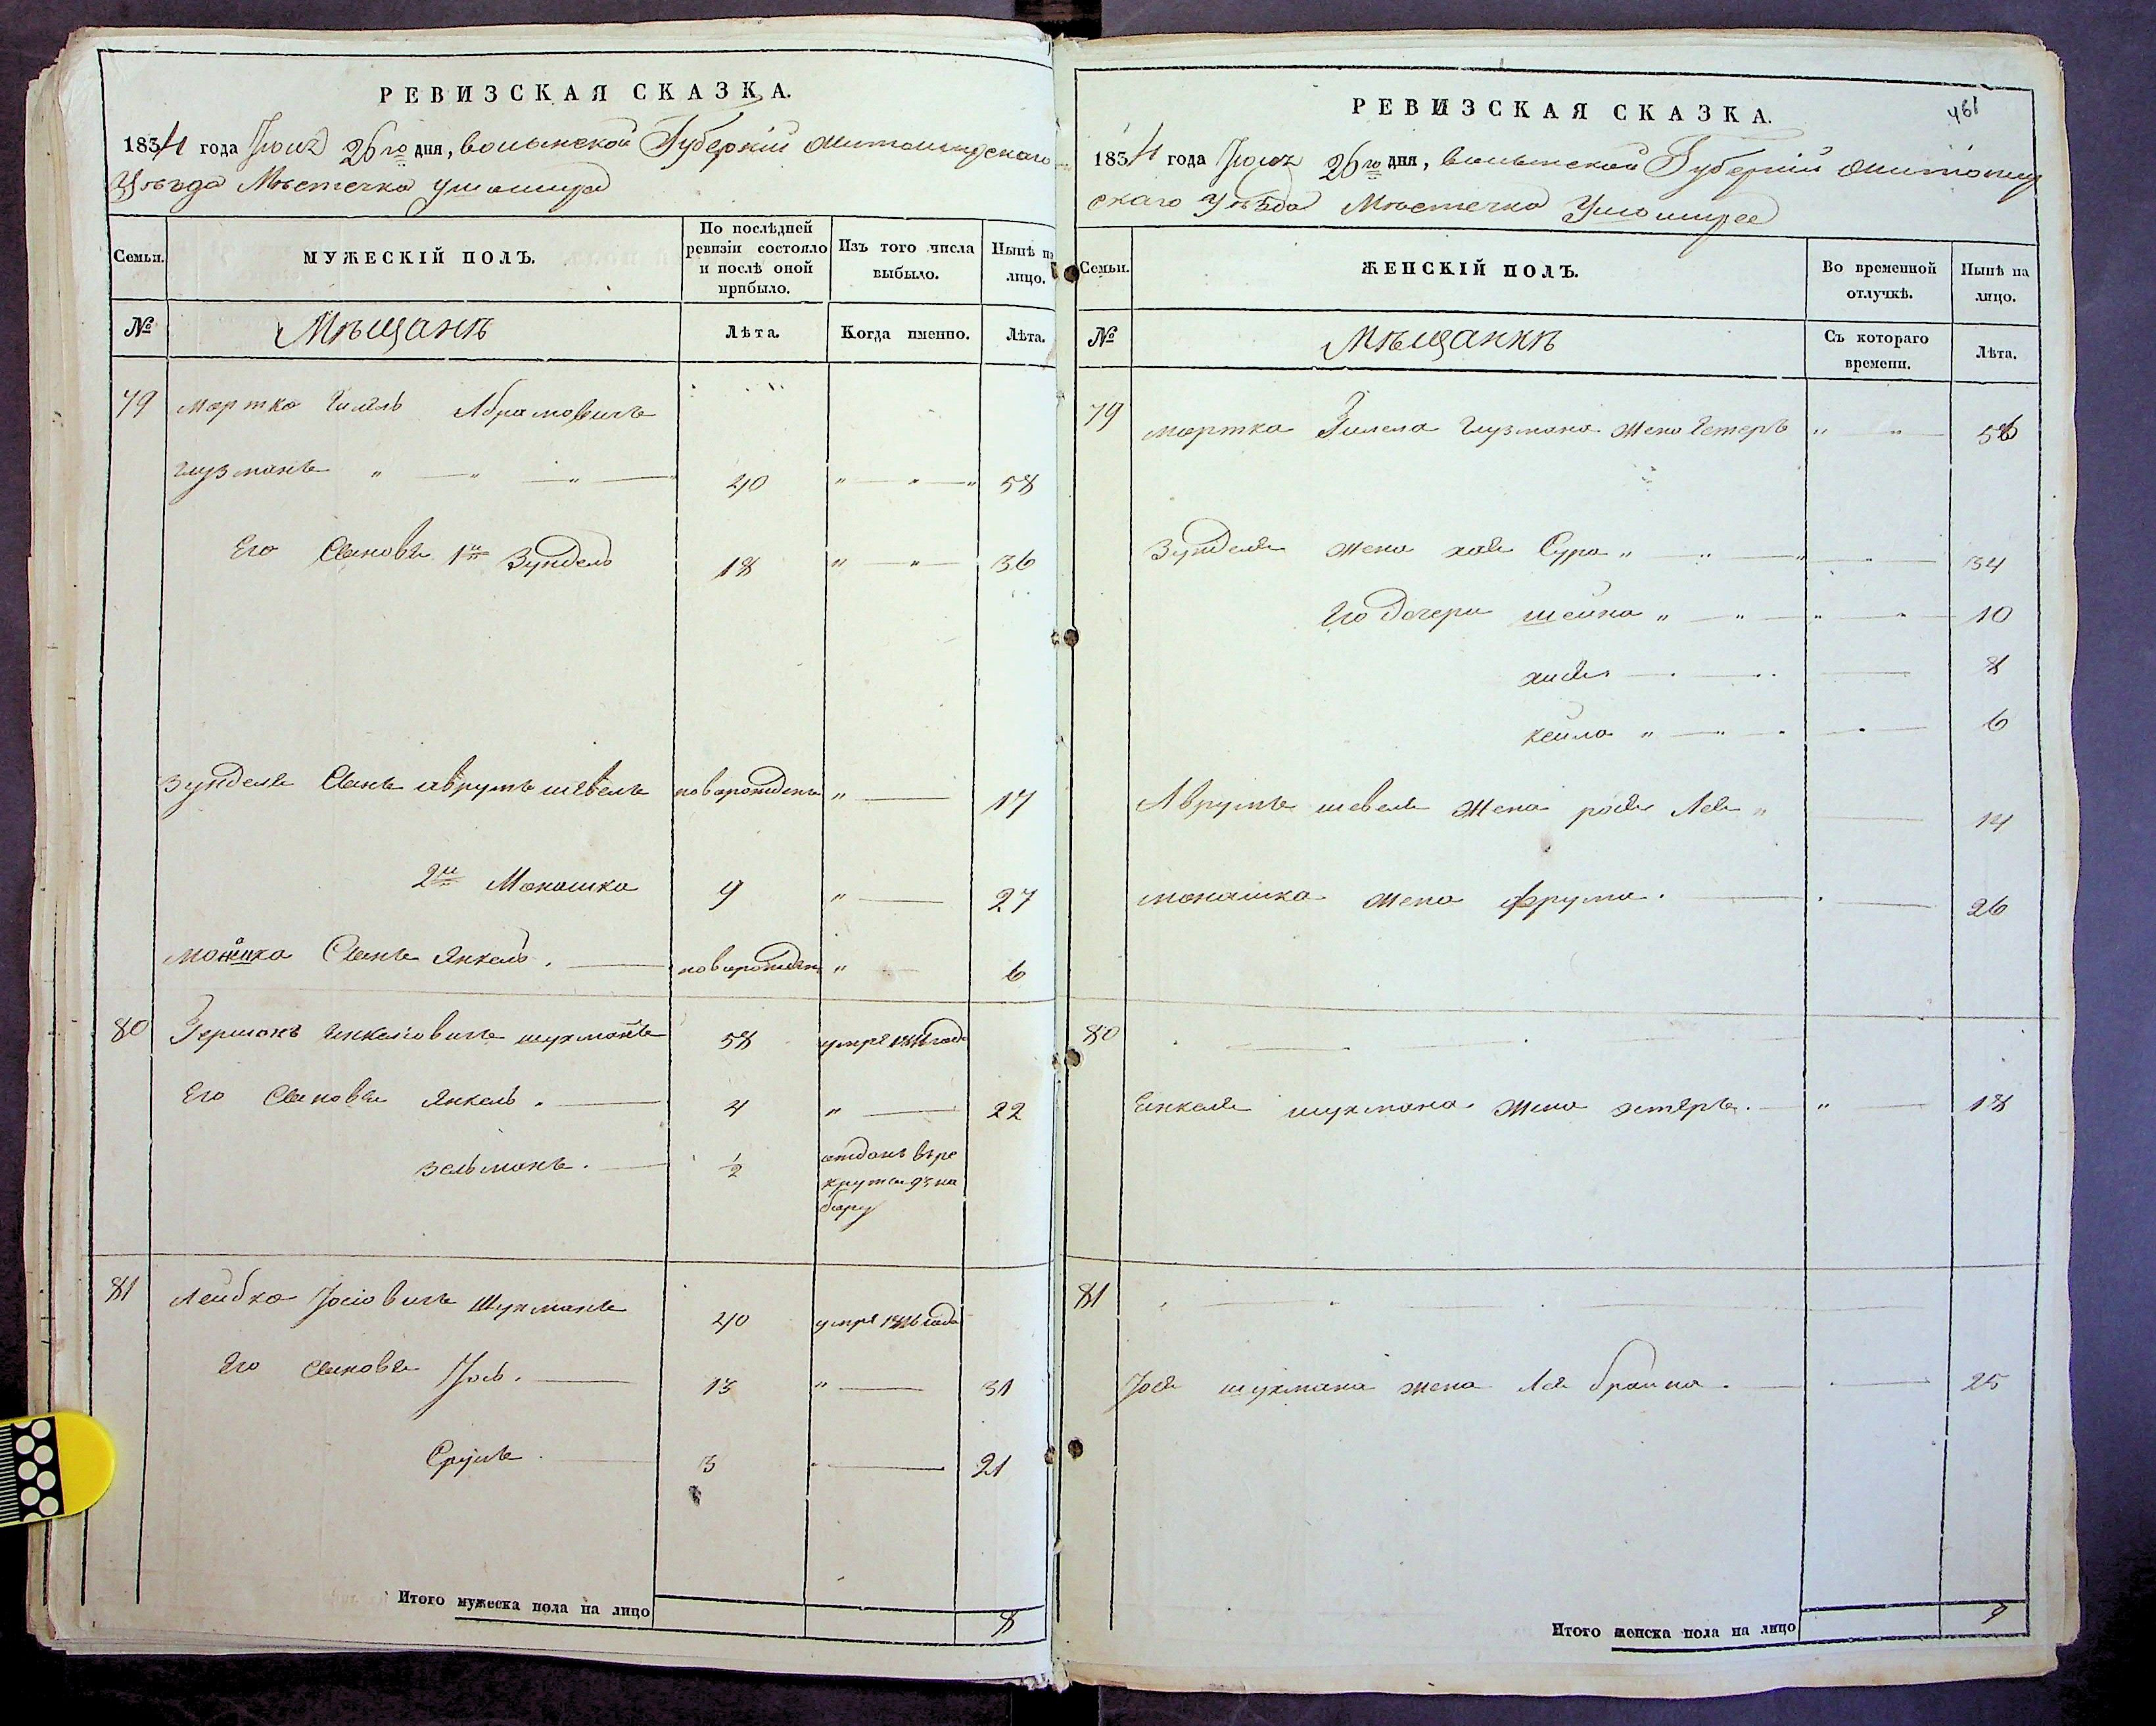 РЕВИЗСКАЯ СКАЗКА.
1834 года Июня 26го дня, волынской Губерніи Житомирскаго
Уѣзда Мѣстечка Ушомира
Семьи. МУЖЕСКІЙ ПОЛЪ. По послѣдней ревизіи состояло и послѣ оной прибыло. Изъ того числа выбыло. Нынѣ на лицо.
№ Мѣщанѣ Лѣта Когда именно. Лѣта.
79 мортко Гилель Абрамовичъ
глузманъ 40 58
Его Сыновъя 1й Зундель 18 36
Зунделя Сынъ аврумъ шевель новорожденъ 17
2й Монашка 9 27
Сынъ Янкель новорожден 6
80 Гершонъ Янкелiовичъ шухманъ 58 умре 1816 года
Его Сыновъя Янкель 4 22
зельманъ ½ отданъ въ ре
круты 93 на
бору
81 Лейбко Iосiовичъ Шухманъ 40 умре 1826 года
Его Сыновъя Iось 13 31
Сруль 3 21
Итого мужеска пола на лицо 8
461
РЕВИЗСКАЯ СКАЗКА.
1834 года Июня 26го дня, волынской Губерніи Житомир
скаго Уѣзда Мѣстечка Ушомира
Семьи. ЖЕНСКІЙ ПОЛЪ. Во временной отлучкѣ. Нынѣ на лицо.
№ Мѣщанкѣ Съ котораго времени. Лѣта.
79 мортка Гилеля глузмана жена Естеръ 56
Зунделя жена хая Сура 34
Его дочери шейна 10
хися 8
кейла 6
Аврумъ шевеля жена рося Лея 14
монашка жена фрума 26
80
Янкеля шухмана жена эстеръ 18
81
Iося шухмана жена Лея брайна 25
Итого женска пола на лицо 9